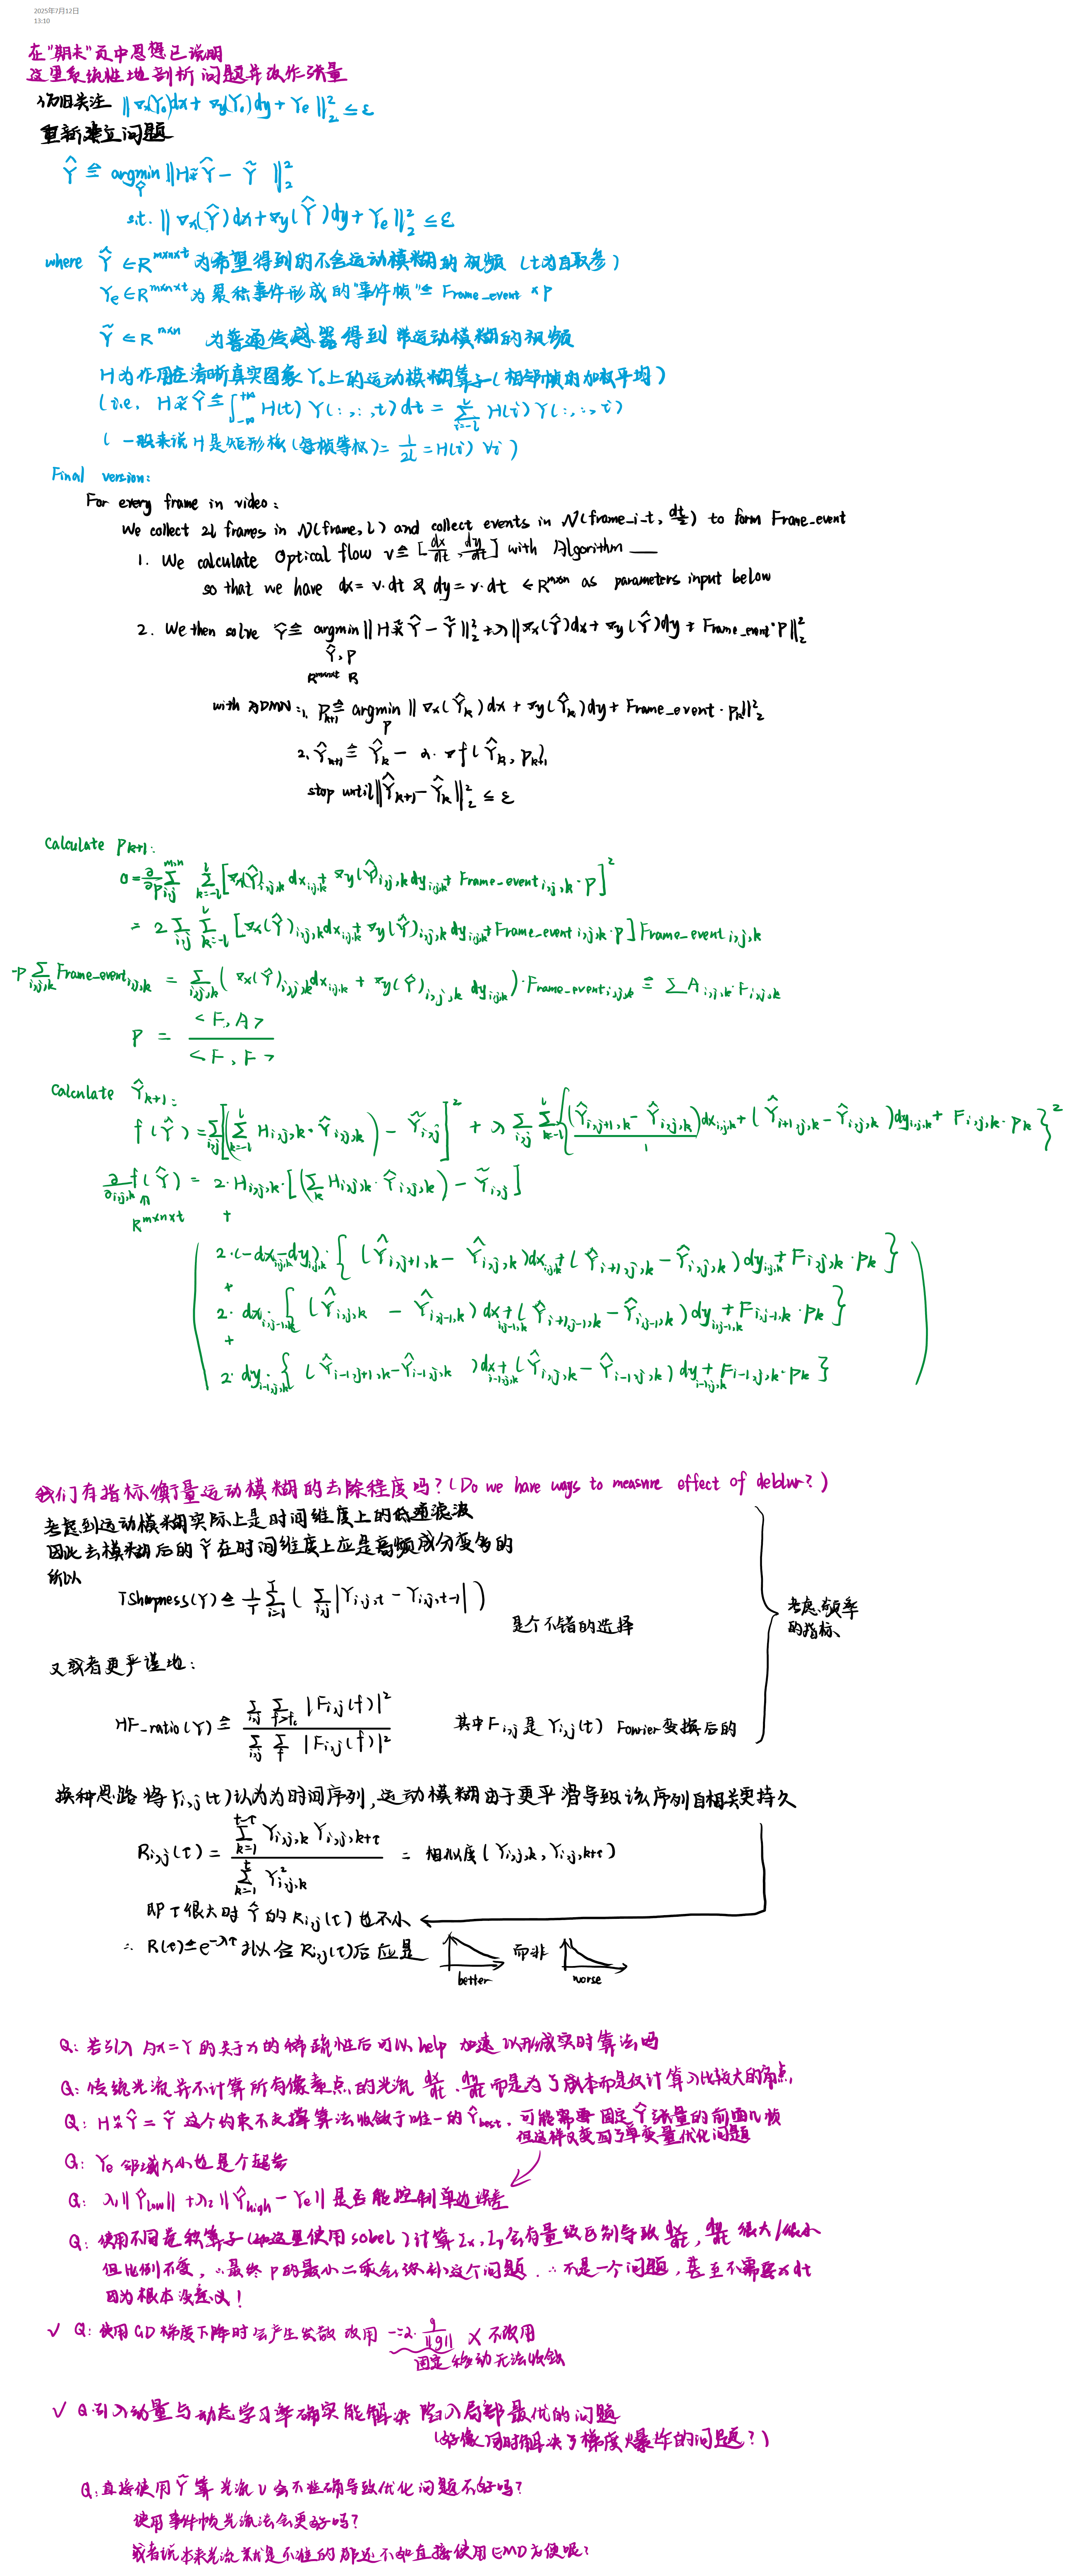 2025年7月12日
13:10
在"期末"页中思想已说明
这里系统性地剖析问题并改作张量
仍旧关注 ‖∇x(Y₀)dx + ∇y(Y₀)dy + Ye‖₂² ≤ ε
重新建立问题
Ŷ ≜ argmin_Ŷ ‖H⊛Ŷ − Ỹ‖₂²
s.t. ‖∇x(Ŷ)dx + ∇y(Ŷ)dy + Ye‖₂² ≤ ε
where Ŷ ∈ R^{m×n×t} 为希望得到的不含运动模糊的视频 (t为自取参)
Ye ∈ R^{m×n×t} 为累积事件形成的"事件帧" ≜ Frame_event × P
Ỹ ∈ R^{m×n} 为普通传感器得到带运动模糊的视频
H为作用在清晰真实图象Y₀上的运动模糊算子(相邻帧的加权平均)
(i.e. H⊛Ŷ ≜ ∫_{-∞}^{+∞} H(t) Y(:,:,t) dt = Σ_{i=-l}^{l} H(i) Y(:,:,i)
(一般来说 H 是矩形核(每帧等权) = 1/2l = H(i) ∀i)
Final version:
For every frame in video:
We collect 2l frames in N(frame, l) and collect events in N(frame_i-t, dt/2) to form Frame_event
1. We calculate Optical flow v ≜ [dx/dt, dy/dt] with Algorithm ___
so that we have dx = v·dt & dy = v·dt ∈ R^{m×n} as parameters input below
2. We then solve Ŷ ≜ argmin ‖H⊛Ŷ − Ỹ‖₂² + λ‖∇x(Ŷ)dx + ∇y(Ŷ)dy + Frame_event·P‖₂²
Ŷ, P
R^{m×n×t} R
with ADMN: 1. P_{k+1} ≜ argmin_P ‖∇x(Ŷk)dx + ∇y(Ŷk)dy + Frame_event·Pk‖₂²
2. Ŷ_{k+1} ≜ Ŷk − α·∇f(Ŷk, P_{k+1})
stop until ‖Ŷ_{k+1} − Ŷk‖₂² ≤ ε
Calculate P_{k+1}:
0 = ∂/∂P Σ_{i,j}^{m,n} Σ_{k=-l}^{l} [∇x(Ŷ)_{i,j,k} dx_{i,j,k} + ∇y(Ŷ)_{i,j,k} dy_{i,j,k} + Frame_event_{i,j,k}·P]²
= 2 Σ_{i,j} Σ_{k=-l}^{l} [∇x(Ŷ)_{i,j,k} dx_{i,j,k} + ∇y(Ŷ)_{i,j,k} dy_{i,j,k} + Frame_event_{i,j,k}·P] Frame_event_{i,j,k}
-P Σ_{i,j,k} Frame_event_{i,j,k} = Σ_{i,j,k} (∇x(Ŷ)_{i,j,k} dx_{i,j,k} + ∇y(Ŷ)_{i,j,k} dy_{i,j,k})·Frame_event_{i,j,k} ≜ Σ A_{i,j,k}·F_{i,j,k}
P = <F, A> / <F, F>
Calculate Ŷ_{k+1}:
f(Ŷ) = Σ_{i,j} [(Σ_{k=-l}^{l} H_{i,j,k}·Ŷ_{i,j,k}) − Ỹ_{i,j}]² + λ Σ_{i,j} Σ_{k=-l}^{l} {(Ŷ_{i,j+1,k} − Ŷ_{i,j,k})/1 dx_{i,j,k} + (Ŷ_{i+1,j,k} − Ŷ_{i,j,k}) dy_{i,j,k} + F_{i,j,k}·Pk}²
∂/∂_{i,j,k} f(Ŷ) = 2·H_{i,j,k}·[(Σ_k H_{i,j,k}·Ŷ_{i,j,k}) − Ỹ_{i,j}]
R^{m×n×t} +
2·(−dx_{i,j,k} − dy_{i,j,k})·{(Ŷ_{i,j+1,k} − Ŷ_{i,j,k})dx_{i,j,k} + (Ŷ_{i+1,j,k} − Ŷ_{i,j,k})dy_{i,j,k} + F_{i,j,k}·Pk}
+
2·dx_{i,j-1,k}·{(Ŷ_{i,j,k} − Ŷ_{i,j-1,k})dx_{i,j-1,k} + (Ŷ_{i+1,j-1,k} − Ŷ_{i,j-1,k})dy_{i,j-1,k} + F_{i,j-1,k}·Pk}
+
2·dy_{i-1,j,k}·{(Ŷ_{i-1,j+1,k} − Ŷ_{i-1,j,k})dx_{i-1,j,k} + (Ŷ_{i,j,k} − Ŷ_{i-1,j,k})dy_{i-1,j,k} + F_{i-1,j,k}·Pk}
我们有指标衡量运动模糊的去除程度吗?(Do we have ways to measure effect of deblur?)
考虑到运动模糊实际上是时间维度上的低通滤波
因此去模糊后的Ŷ在时间维度上应是高频成分变多的
所以
TSharpness(Y) ≜ 1/T Σ_{i=1}^{T} (Σ_{i,j} |Y_{i,j,t} − Y_{i,j,t-1}|)
是个不错的选择
考虑频率
的指标
又或者更严谨地:
HF_ratio(Y) ≜ Σ_{i,j} Σ_{f>fc} |F_{i,j}(f)|² / Σ_{i,j} Σ_f |F_{i,j}(f)|² 其中F_{i,j}是Y_{i,j}(t) Fourier变换后的
换种思路 将Y_{i,j}(t)认为为时间序列,运动模糊由于更平滑导致该序列自相关更持久
R_{i,j}(τ) = Σ_{k=1}^{t-τ} Y_{i,j,k} Y_{i,j,k+τ} / Σ_{k=1}^{t} Y²_{i,j,k} = 相似度(Y_{i,j,k}, Y_{i,j,k+τ})
即τ很大时Ŷ的R_{i,j}(τ)也不小
∴ R(τ) ≜ e^{-λτ} 拟合R_{i,j}(τ)后应是 而非
better worse
Q: 若引入Ax=Y的关于x的稀疏性后可以help 加速 以形成实时算法吗
Q: 传统光流并不计算所有像素点的光流 dx/dt, dy/dt 而是为了成本而是仅计算λ比较大的角点
Q: H⊛Ŷ = Ỹ 这个约束不支撑算法收敛于唯一的Ŷbest, 可能需要固定Ŷ张量的前面几帧
但这样又变回了单变量优化问题
Q: Ye 邻域大小也是个超参
Q: λ₁‖Ŷlow‖ + λ₂‖Ŷhigh − Ye‖ 是否能控制单边误差
Q: 使用不同卷积算子(如这里使用sobel)计算Ix, Iy会有量级区别导致 dx/dt, dy/dt 很大/很小
但比例不变, ∴最终P的最小二乘会弥补这个问题. ∴不是一个问题, 甚至不需要×dt
因为根本没意义!
✓ Q: 使用GD梯度下降时会产生发散 改用 −=α·g/‖g‖ × 不改用
固定移动无法收敛
✓ Q: 引入动量与动态学习率确实能解决 陷入局部最优的问题
(好像同时解决了梯度爆炸的问题?)
Q: 直接使用Ỹ算光流v会不准确导致优化问题不好吗?
使用事件帧光流法会更好吗?
或者说本来光流就是不准的那还不如直接使用EMD方便呢?